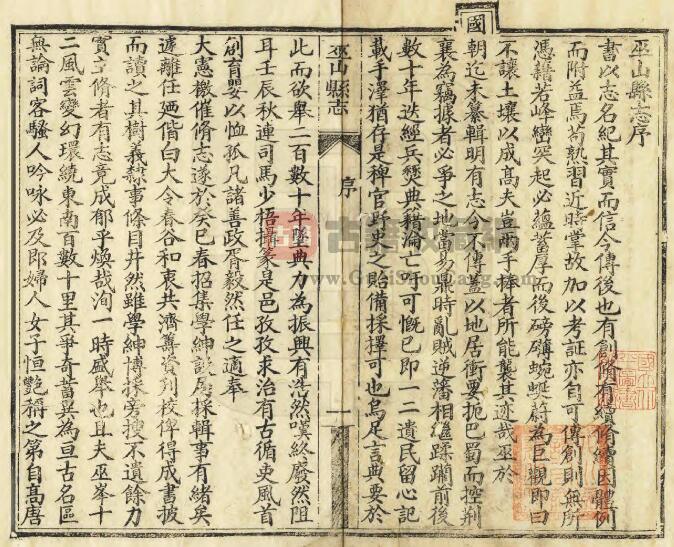 巫山縣志序
書以志名紀其實而信今傳後也有創脩有續脩續因體例
而附益焉苟熟習近時掌故加以考証亦自可傳創則無所
憑藉若峰巒突起必蘊蓄厚而後磅礴蜿蜒蔚為巨觀即曰
不讓土壤以成高夫豈兩手捧者所能襲其迹哉巫於
國朝迄未纂輯明有志今不傳蓋以地居衝要扼巴蜀而控荆
襄為竊據者必爭之地當易鼎時亂賊逆藩相繼蹂躪前後
數十年迭經兵燹典籍淪亡吁可慨已即一二遺民留心記
載手澤猶存是稗官野史之貽備採擇可也烏足言典要於
巫山縣志
序
一
此而欲舉二百數十年墜典力為振興有浩然嘆終廢然阻
耳壬辰秋連司馬少梧攝篆是邑孜孜求治有古循吏風首
創育嬰以恤孤凡諸善政胥毅然任之適奉
大憲檄催脩志遂於癸巳春招集學紳設局採輯事有緒矣
遽離任廼偕白大令春谷和衷共濟籌資列校俾得成書披
而讀之其樹義隸事條目井然雖學紳博採旁搜不遺餘力
實立脩者有志竟成郁乎煥哉洵一時盛舉也且夫巫峯十
二風雲變幻環繞東南百數十里其爭奇蓄異為亘古名區
無論詞客騷人吟咏必及即婦人女子恒艷稱之第自高唐
www.GuJiShouCang.com